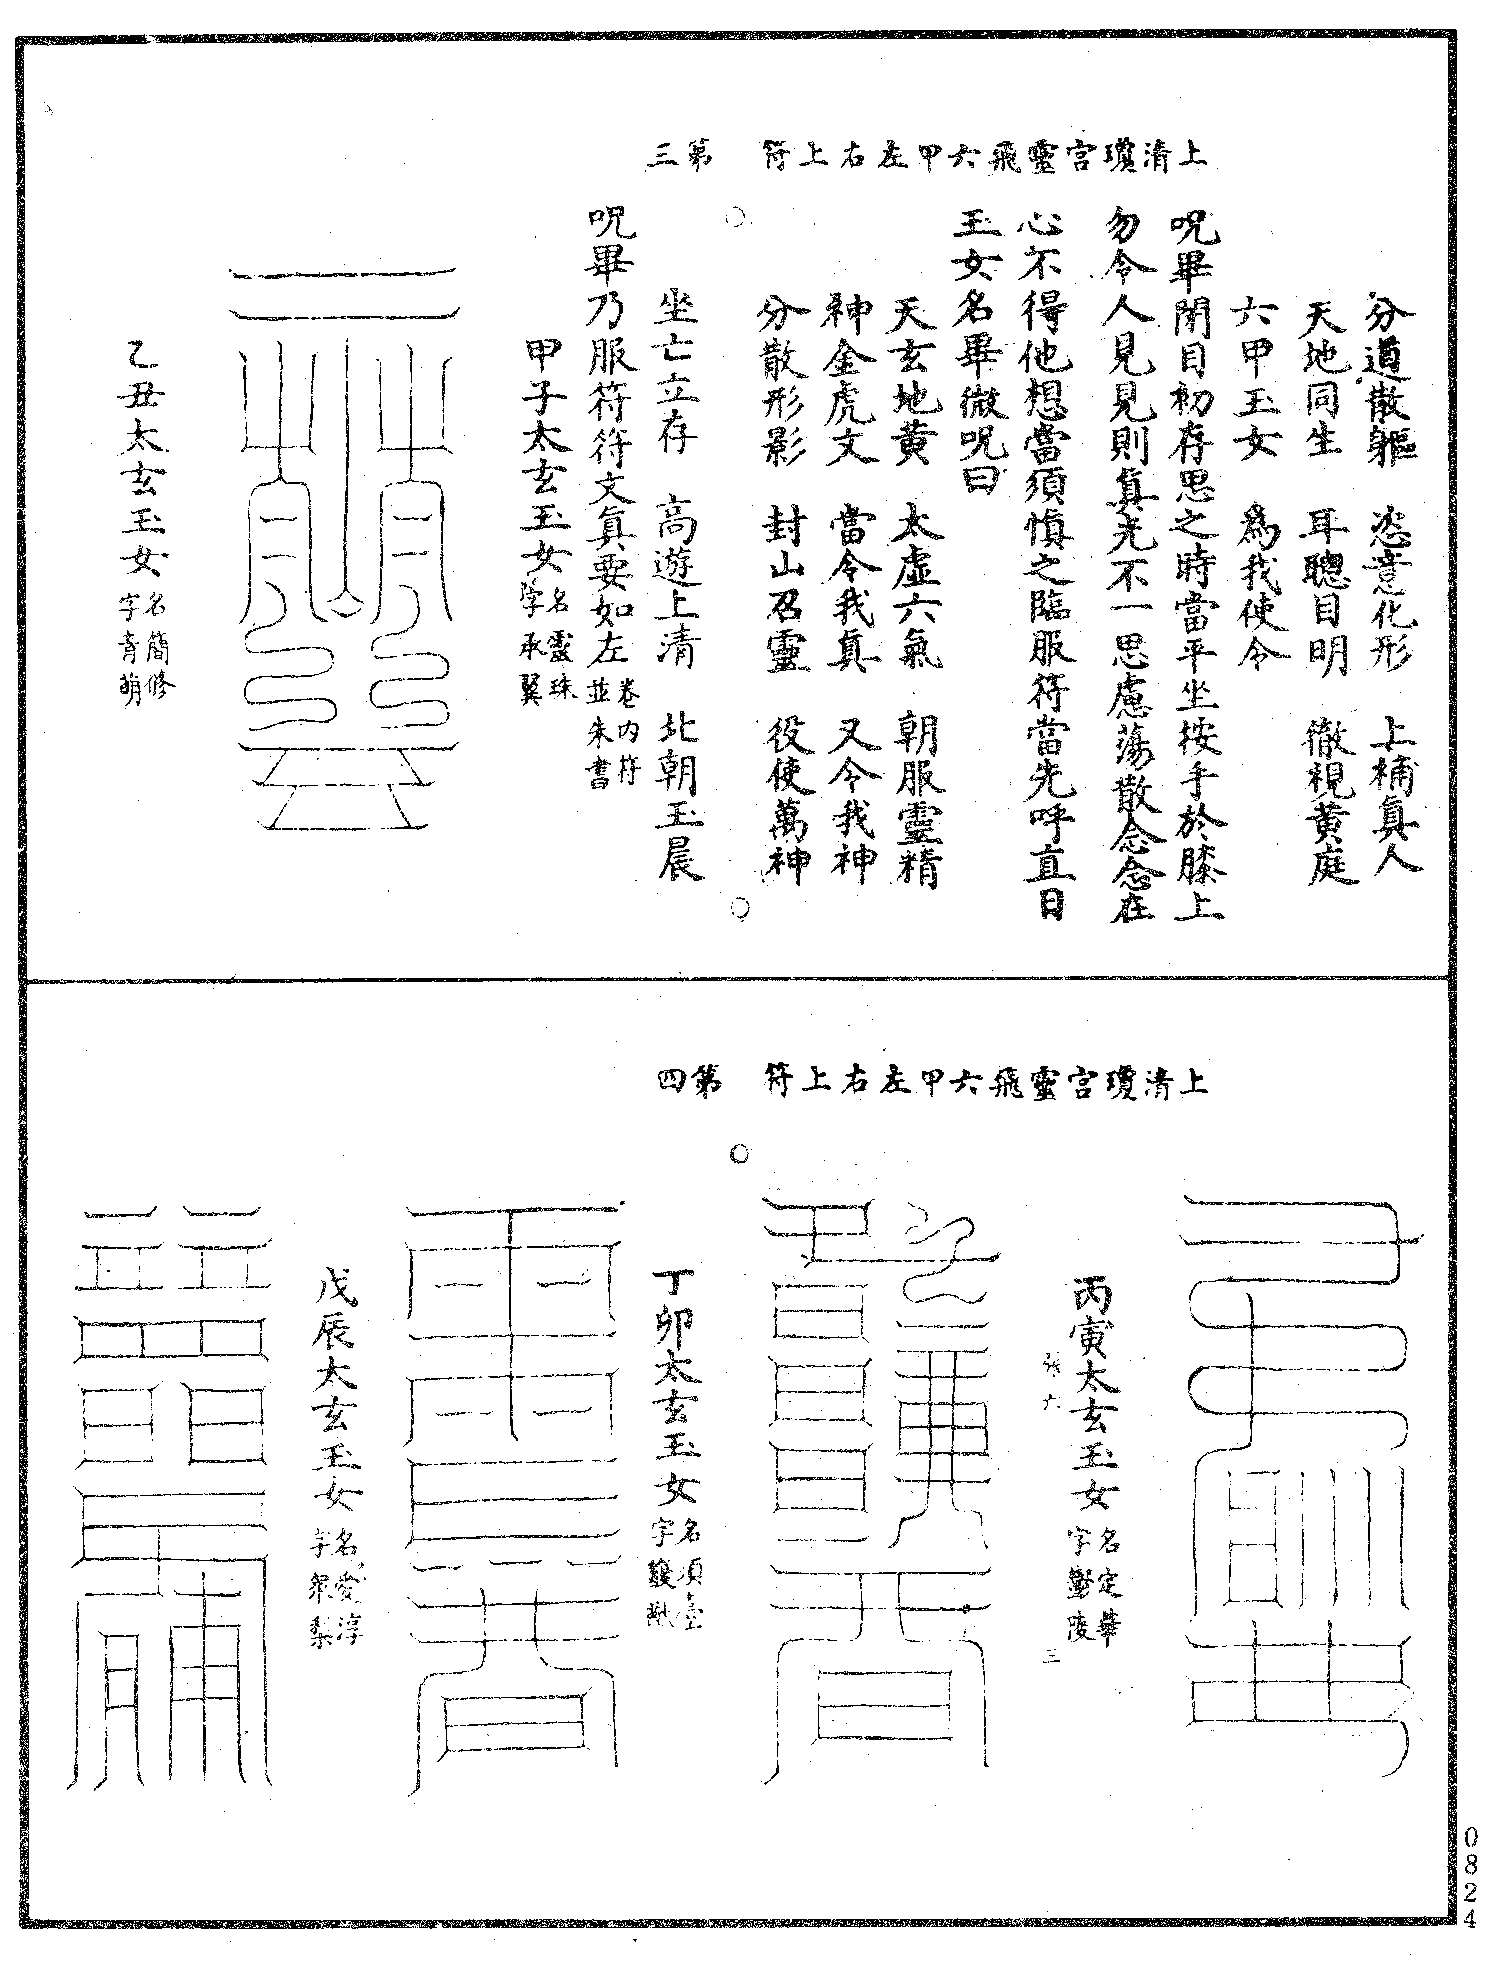 上清瓊宮靈飛六甲左右上符　第三
分道散軀　恣意化形　上補真人
天地同生　耳聰目明　徹視黃庭
六甲玉女　為我使令
呪畢閉目初存思之時當平坐按手於膝上
勿令人見見則真光不一思慮蕩散念念在
心不得他想當須慎之臨服符當先呼直日
玉女名畢微呪曰
天玄地黃　太虛六氣　朝服靈精
神金虎文　當令我真　又令我神
分散形影　封山召靈　役使萬神
坐亡立存　高遊上清　北朝玉晨
呪畢乃服符符文真要如左卷内符並朱書
甲子太玄玉女名靈珠字承翼
乙丑太玄玉女名簡修字青萌
上清瓊宮靈飛六甲左右上符　第四
丙寅太玄玉女名定華字鬱陵
張六　三
丁卯太玄玉女名須臺字
戊辰太玄玉女名愛淳字衆梨
0824